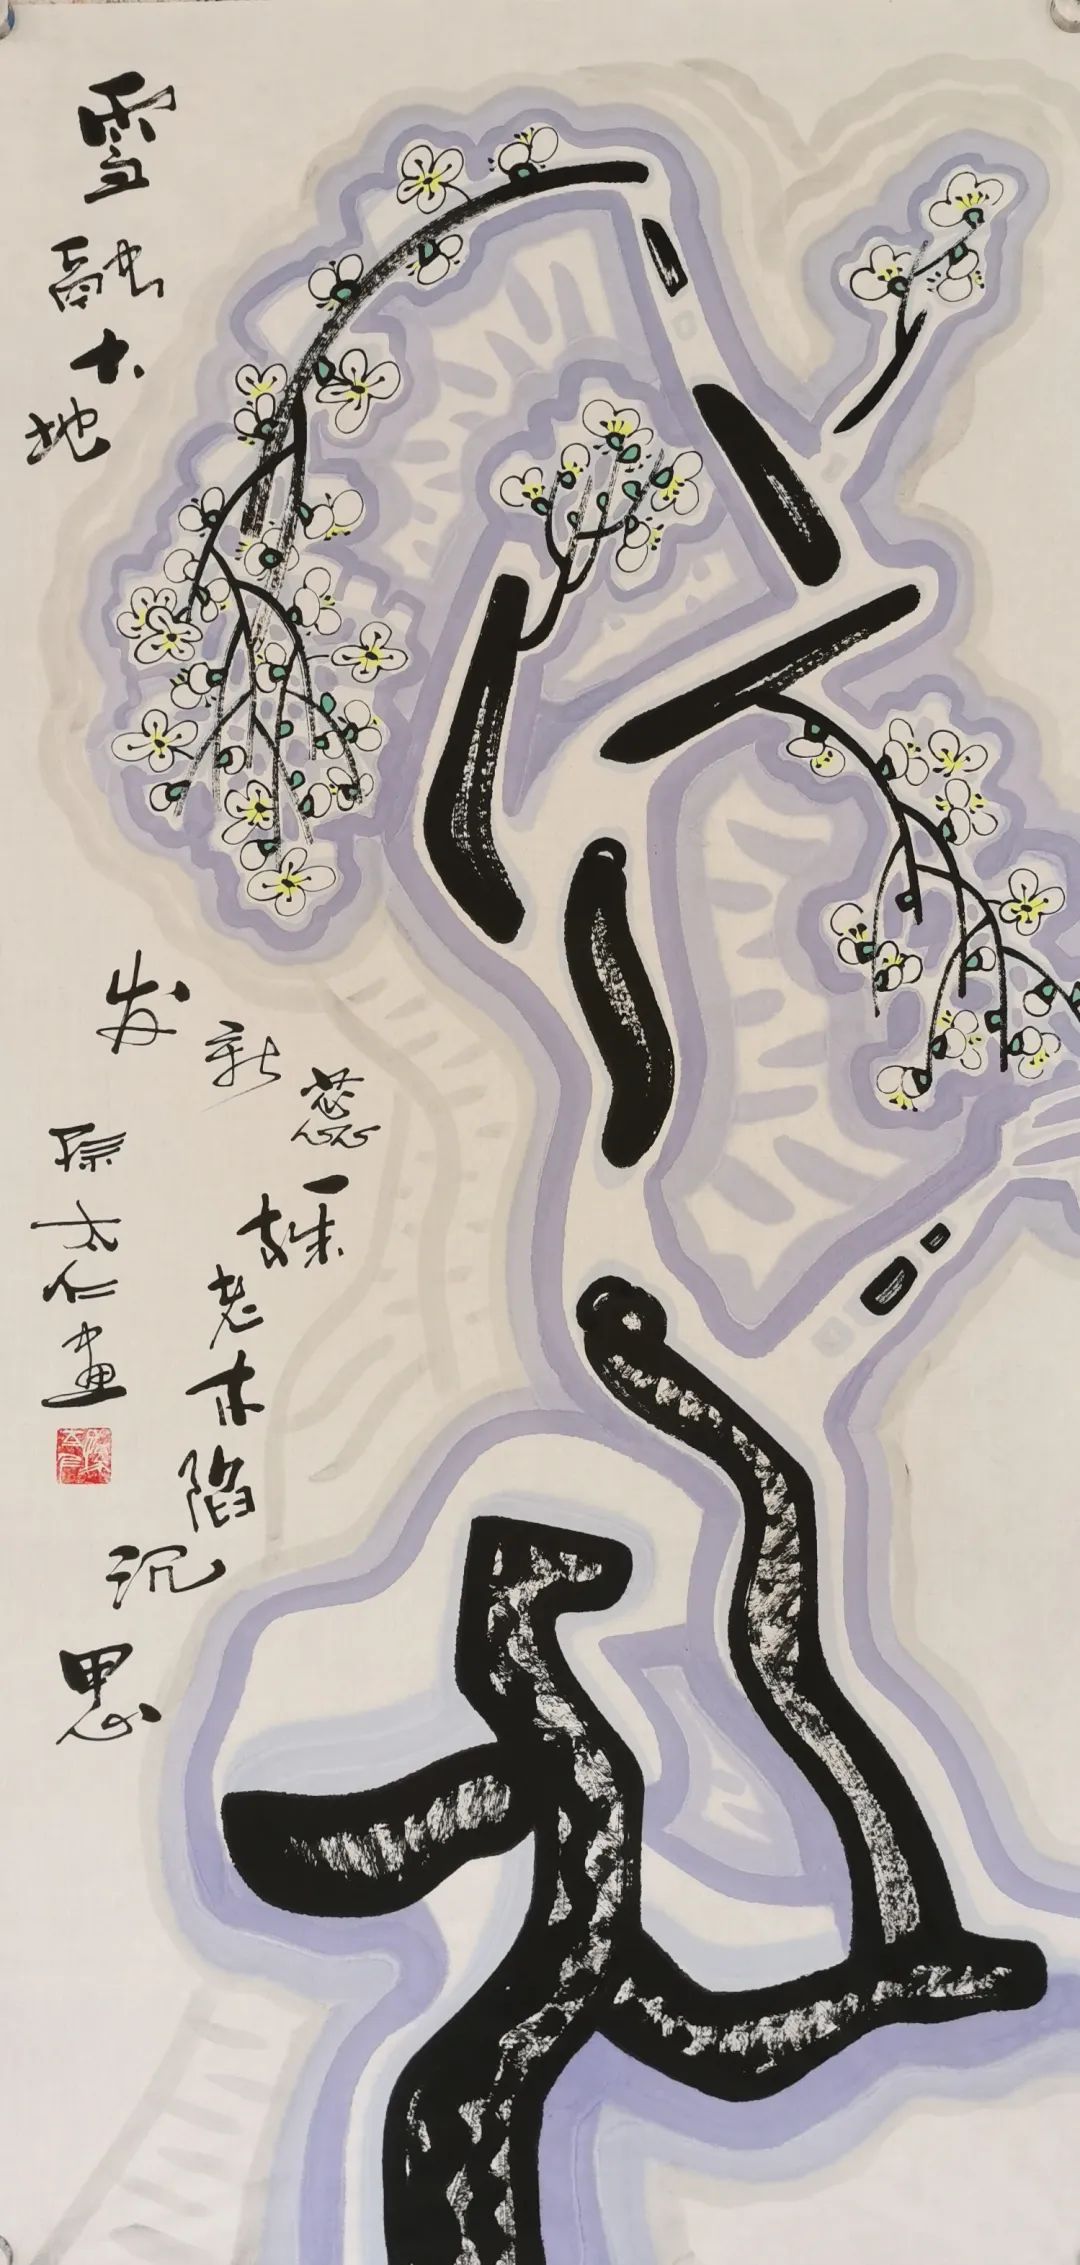 雪融大地
发新蕊
一株老木陷沉思
孫太仁畫